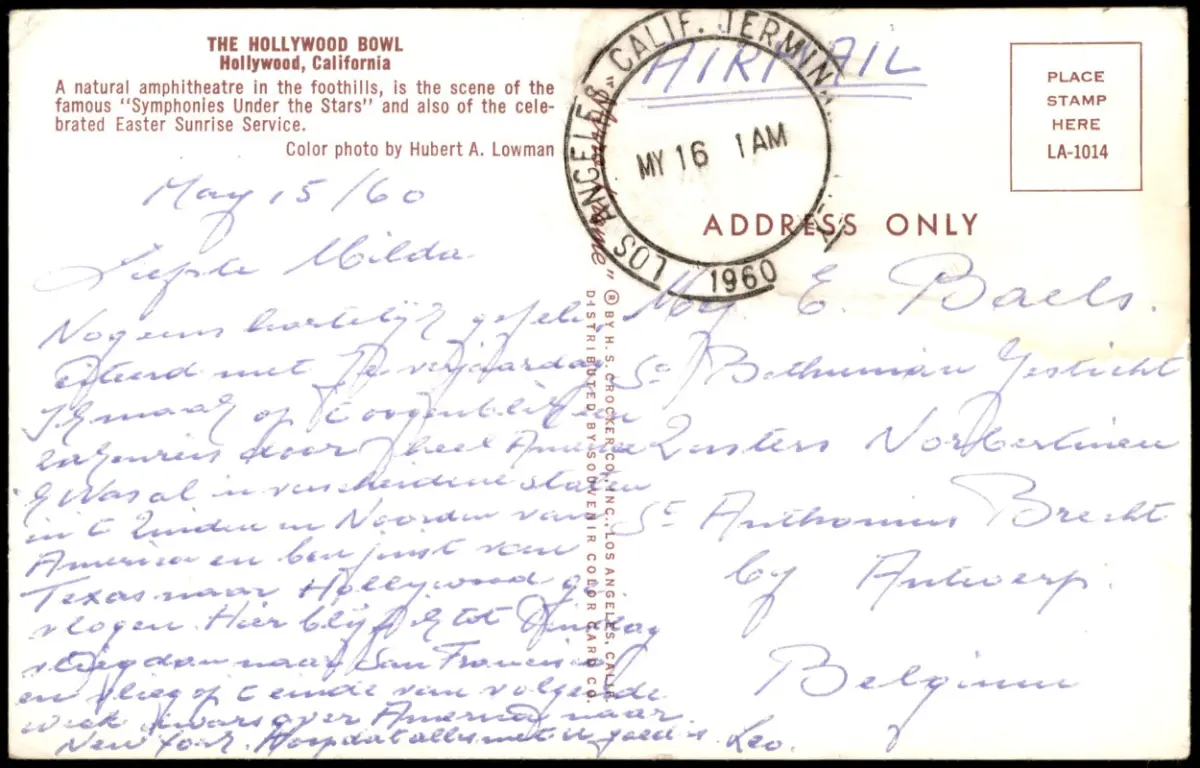 THE HOLLYWOOD BOWL
Hollywood, California
A natural amphitheatre in the foothills, is the scene of the
famous "Symphonies Under the Stars" and also of the cele-
brated Easter Sunrise Service.
Color photo by Hubert A. Lowman
May 15/60
Liefste Milda
Nogeens hartelijk gefeli-
citeerd met Je verjaardag
Ik maak op 't oogenblik een
zakenreis door heel America
Ik was al in verscheidene staten
in 't Zuiden en Noorden van
America en ben juist van
Texas naar Hollywood ge-
vlogen. Hier blijf ik tot Dinsdag
vlieg dan naar San Francisco
en vlieg op 't einde van volgende
week dwars over America naar
New York. Hoop dat alles met U goed is. Leo.
"Mirro-Krome" ® BY H. S. CROCKER CO., INC., LOS ANGELES, CALIF.
DISTRIBUTED BY SOUVENIR COLOR CARD CO.
LOS ANGELES, CALIF. TERMINAL
MY 16 1 AM
1960
AIRMAIL
PLACE
STAMP
HERE
LA-1014
ADDRESS ONLY
Mej E. Baels.
St Gesticht
Zusters Norbertinen
St Anthonius Brecht
by Antwerp.
Belgium